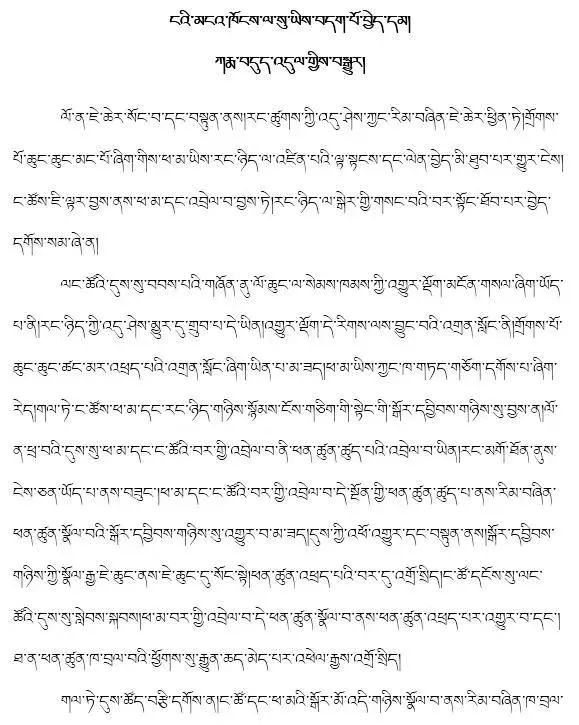 ངའི་མངའ་ཁོངས་ལ་སུ་ཡིས་བདག་པོ་བྱེད་དམ།
ཀརྨ་བདུད་འདུལ་གྱིས་བསྒྱུར།
ལོ་ན་ཇེ་ཆེར་སོང་བ་དང་བསྟུན་ནས།རང་ཚུགས་ཀྱི་འདུ་ཤེས་ཀྱང་རིམ་བཞིན་ཇེ་ཆེར་ཕྱིན་ཏེ།གྲོགས་
པོ་ཆུང་ཆུང་མང་པོ་ཞིག་གིས་ཕ་མ་ཡིས་རང་ཉིད་ལ་འཛིན་པའི་ལྟ་སྟངས་དང་ལེན་བྱེད་མི་ཐུབ་པར་གྱུར་ངེས།
ང་ཚོས་ཇི་ལྟར་བྱས་ནས་ཕ་མ་དང་འབྲེལ་བ་བྱས་ཏེ།རང་ཉིད་ལ་སྒེར་གྱི་གསང་བའི་བར་སྟོང་ཐོབ་པར་བྱེད་
དགོས་སམ་ཞེ་ན།
ལང་ཚོའི་དུས་སུ་བབས་པའི་གཞོན་ནུ་ལོ་ཆུང་ལ་སེམས་ཁམས་ཀྱི་འགྱུར་ལྡོག་མངོན་གསལ་ཞིག་ཡོད་
པ་ནི།རང་ཉིད་ཀྱི་འདུ་ཤེས་མྱུར་དུ་གྲུབ་པ་དེ་ཡིན།འགྱུར་ལྡོག་དེ་རིགས་ལས་བྱུང་བའི་འགྲན་སློང་ནི།གྲོགས་པོ་
ཆུང་ཆུང་ཚང་མར་འཕྲད་པའི་འགྲན་སློང་ཞིག་ཡིན་པ་མ་ཟད།ཕ་མ་ཡིས་ཀྱང་ཁ་གཏད་གཅོག་དགོས་པ་ཞིག་
རེད།གལ་ཏེ་ང་ཚོས་ཕ་མ་དང་རང་ཉིད་གཉིས་སྙོམས་ངོས་གཅིག་གི་སྟེང་གི་སྒོར་དབྱིབས་གཉིས་སུ་བྱས་ན།ལོ་
ན་ཕྲ་བའི་དུས་སུ་ཕ་མ་དང་ང་ཚོའི་བར་གྱི་འབྲེལ་བ་ནི་ཕན་ཚུན་ཚུད་པའི་འབྲེལ་བ་ཡིན།རང་མགོ་ཐོན་ནུས་
ངེས་ཅན་ཡོད་པ་ནས་བཟུང་།ཕ་མ་དང་ང་ཚོའི་བར་གྱི་འབྲེལ་བ་དེ་སྔོན་གྱི་ཕན་ཚུན་ཚུད་པ་ནས་རིམ་བཞིན་
ཕན་ཚུན་སྣོལ་བའི་སྒོར་དབྱིབས་གཉིས་སུ་འགྱུར་བ་མ་ཟད།དུས་ཀྱི་འཕོ་འགྱུར་དང་བསྟུན་ནས།སྒོར་དབྱིབས་
གཉིས་ཀྱི་སྣོལ་རྒྱ་ཇེ་ཆུང་ནས་ཇེ་ཆུང་དུ་སོང་སྟེ།ཕན་ཚུན་འཕྲད་པའི་བར་དུ་འགྲོ་སྲིད།ང་ཚོ་དངོས་སུ་ལང་
ཚོའི་དུས་སུ་སླེབས་སྐབས།ཕ་མ་བར་གྱི་འབྲེལ་བ་དེ་ཕན་ཚུན་སྣོལ་བ་ནས་ཕན་ཚུན་འཕྲད་པར་འགྱུར་བ་དང་།
ཐ་ན་ཕན་ཚུན་ཁ་བྲལ་བའི་ཕྱོགས་སུ་རྒྱུན་ཆད་མེད་པར་འཕེལ་རྒྱས་འགྲོ་སྲིད།
གལ་ཏེ་དུས་ཚོད་བརྩི་དགོས་ན།ང་ཚོ་དང་ཕ་མའི་སྒོར་མོ་འདི་གཉིས་སྣོལ་བ་ནས་རིམ་བཞིན་ཁ་བྲལ་